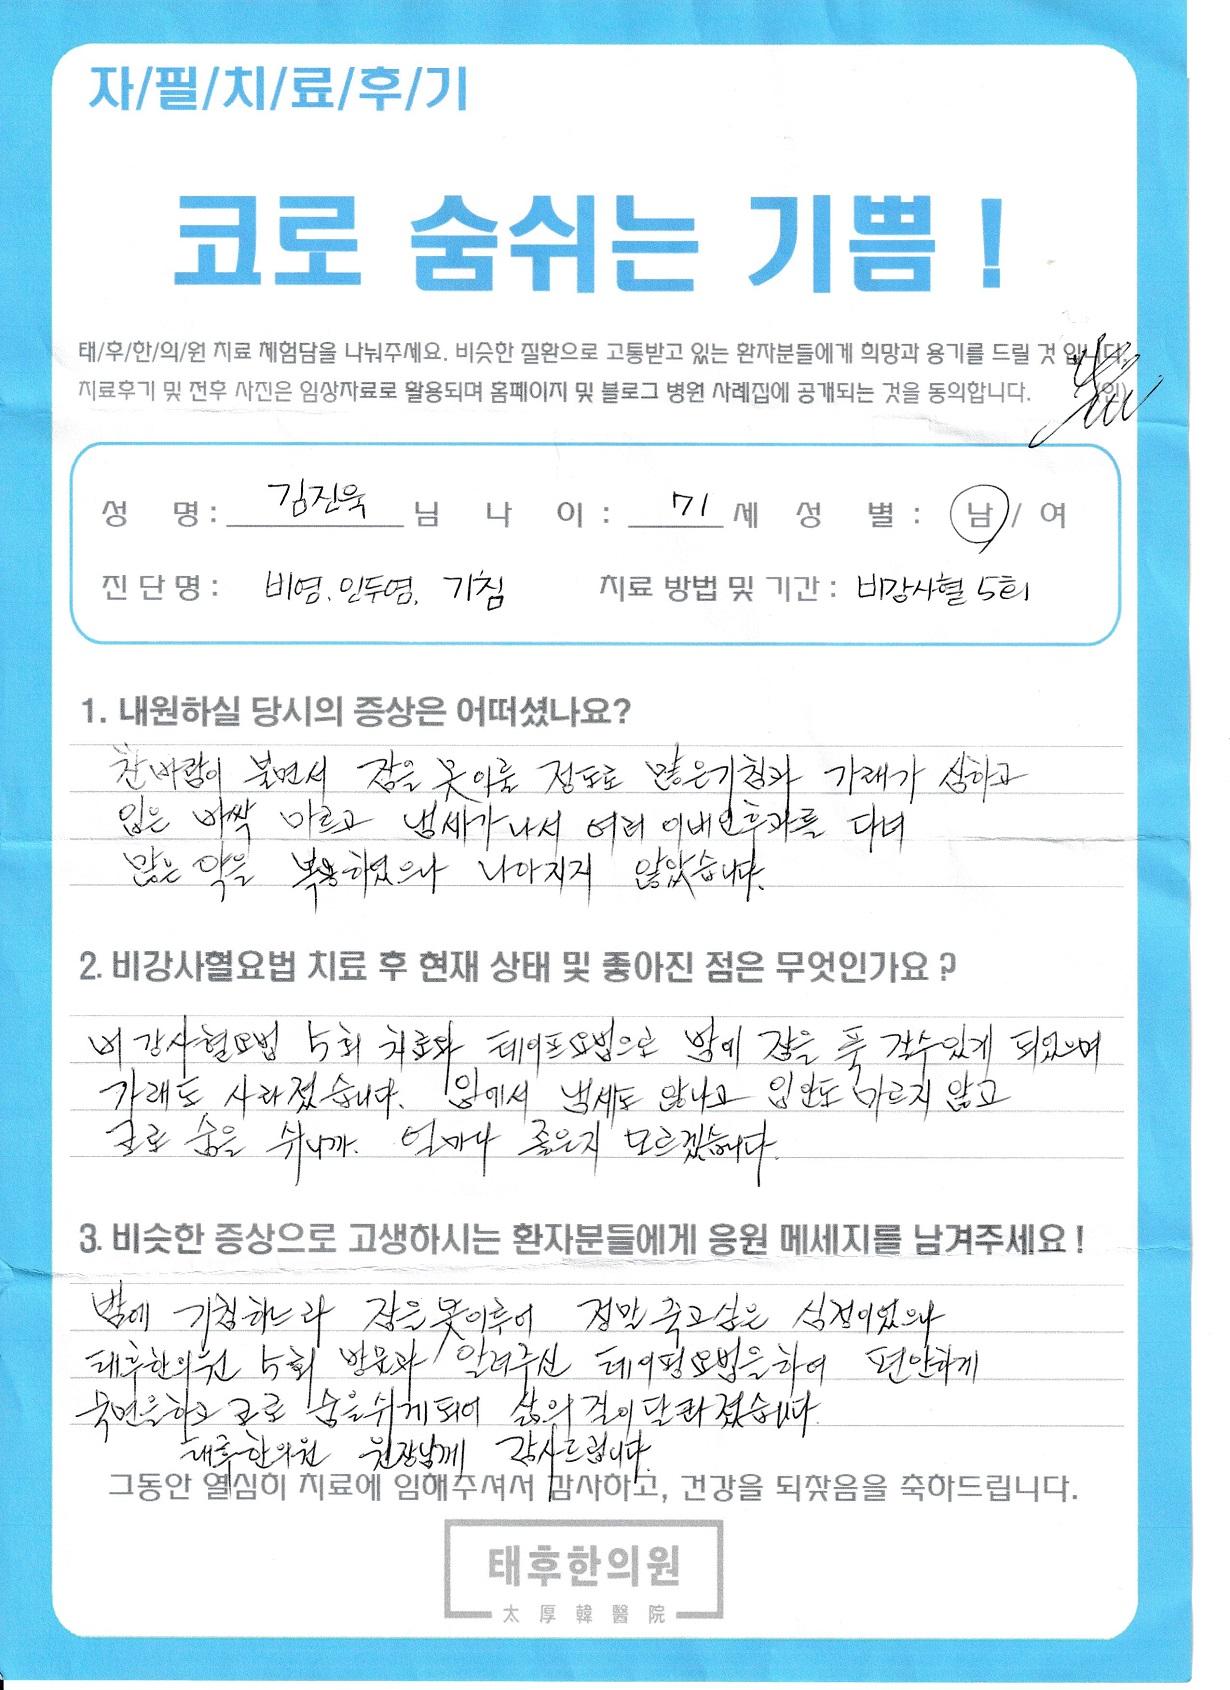 자/필/치/료/후/기
코로 숨쉬는 기쁨 !
태/후/한/의/원 치료 체험담을 나눠주세요. 비슷한 질환으로 고통받고 있는 환자분들에게 희망과 용기를 드릴 것 입니다.
치료후기 및 전후 사진은 임상자료로 활용되며 홈페이지 및 블로그 병원 사례집에 공개되는 것을 동의합니다. (인)
성 명 : 김진욱 님 나 이 : 71 세 성 별 : 남 / 여
진 단 명 : 비염. 인두염. 기침 치료 방법 및 기간 : 비강사혈 5회
1. 내원하실 당시의 증상은 어떠셨나요?
찬바람이 불면서 잠을 못 이룰 정도로 많은기침과 가래가 심하고
입은 바싹 마르고 냄새가나서 여러 이비인후과를 다녀
많은 약을 복용하였으나 나아지지 않았습니다.
2. 비강사혈요법 치료 후 현재 상태 및 좋아진 점은 무엇인가요 ?
비강사혈요법 5회 치료와 테이프요법으로 밤에 잠을 푹 잘수있게 되었으며
가래도 사라졌습니다. 입에서 냄새도 않나고 입안도 마르지 않고
코로 숨을 쉬니까. 얼마나 좋은지 모르겠습니다.
3. 비슷한 증상으로 고생하시는 환자분들에게 응원 메세지를 남겨주세요 !
밤에 기침하느라 잠을못이루어 정말 죽고싶은 심정이었으나
태후한의원 5회 방문과 알려주신 테이핑요법을하여 편안하게
숙면을하고 코로 숨을쉬게되어 삶의 질이달라졌습니다.
태후한의원 원장님께 감사드립니다.
그동안 열심히 치료에 임해주셔서 감사하고, 건강을 되찾음을 축하드립니다.
태후한의원
太厚韓醫院